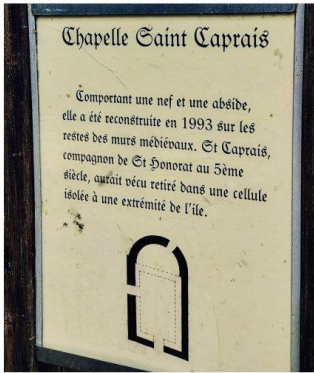 Chapelle Saint Caprais
Comportant une nef et une abside,
elle a été reconstruite en 1993 sur les
restes des murs médiévaux. St Caprais,
compagnon de St Honorat au 5ème
siècle, aurait vécu retiré dans une cellule
isolée à une extrémité de l'ile.